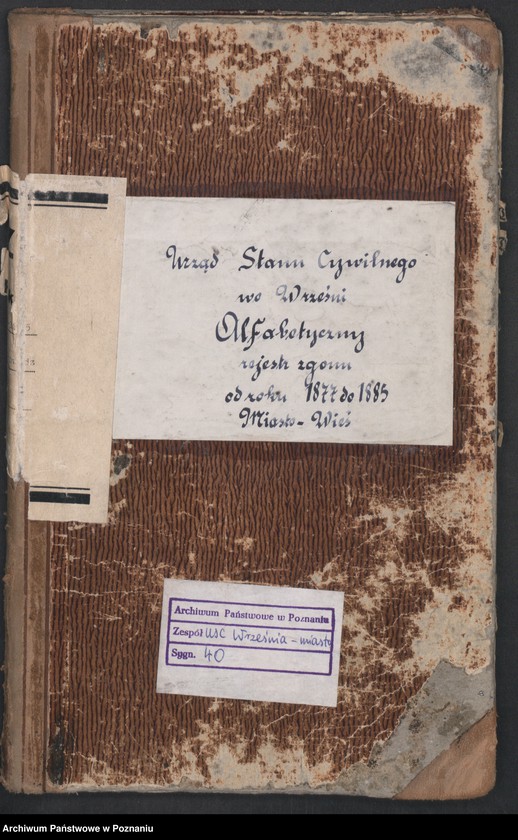 Urząd Stanu Cywilnego
we Wrześni
Alfabetyczny
rejestr zgonu
od roku 1877 do 1885
Miasto - Wieś
Archiwum Państwowe w Poznaniu
Zespół USC Września - miasto
Sygn. 40
Archiwum Państwowe w Poznaniu